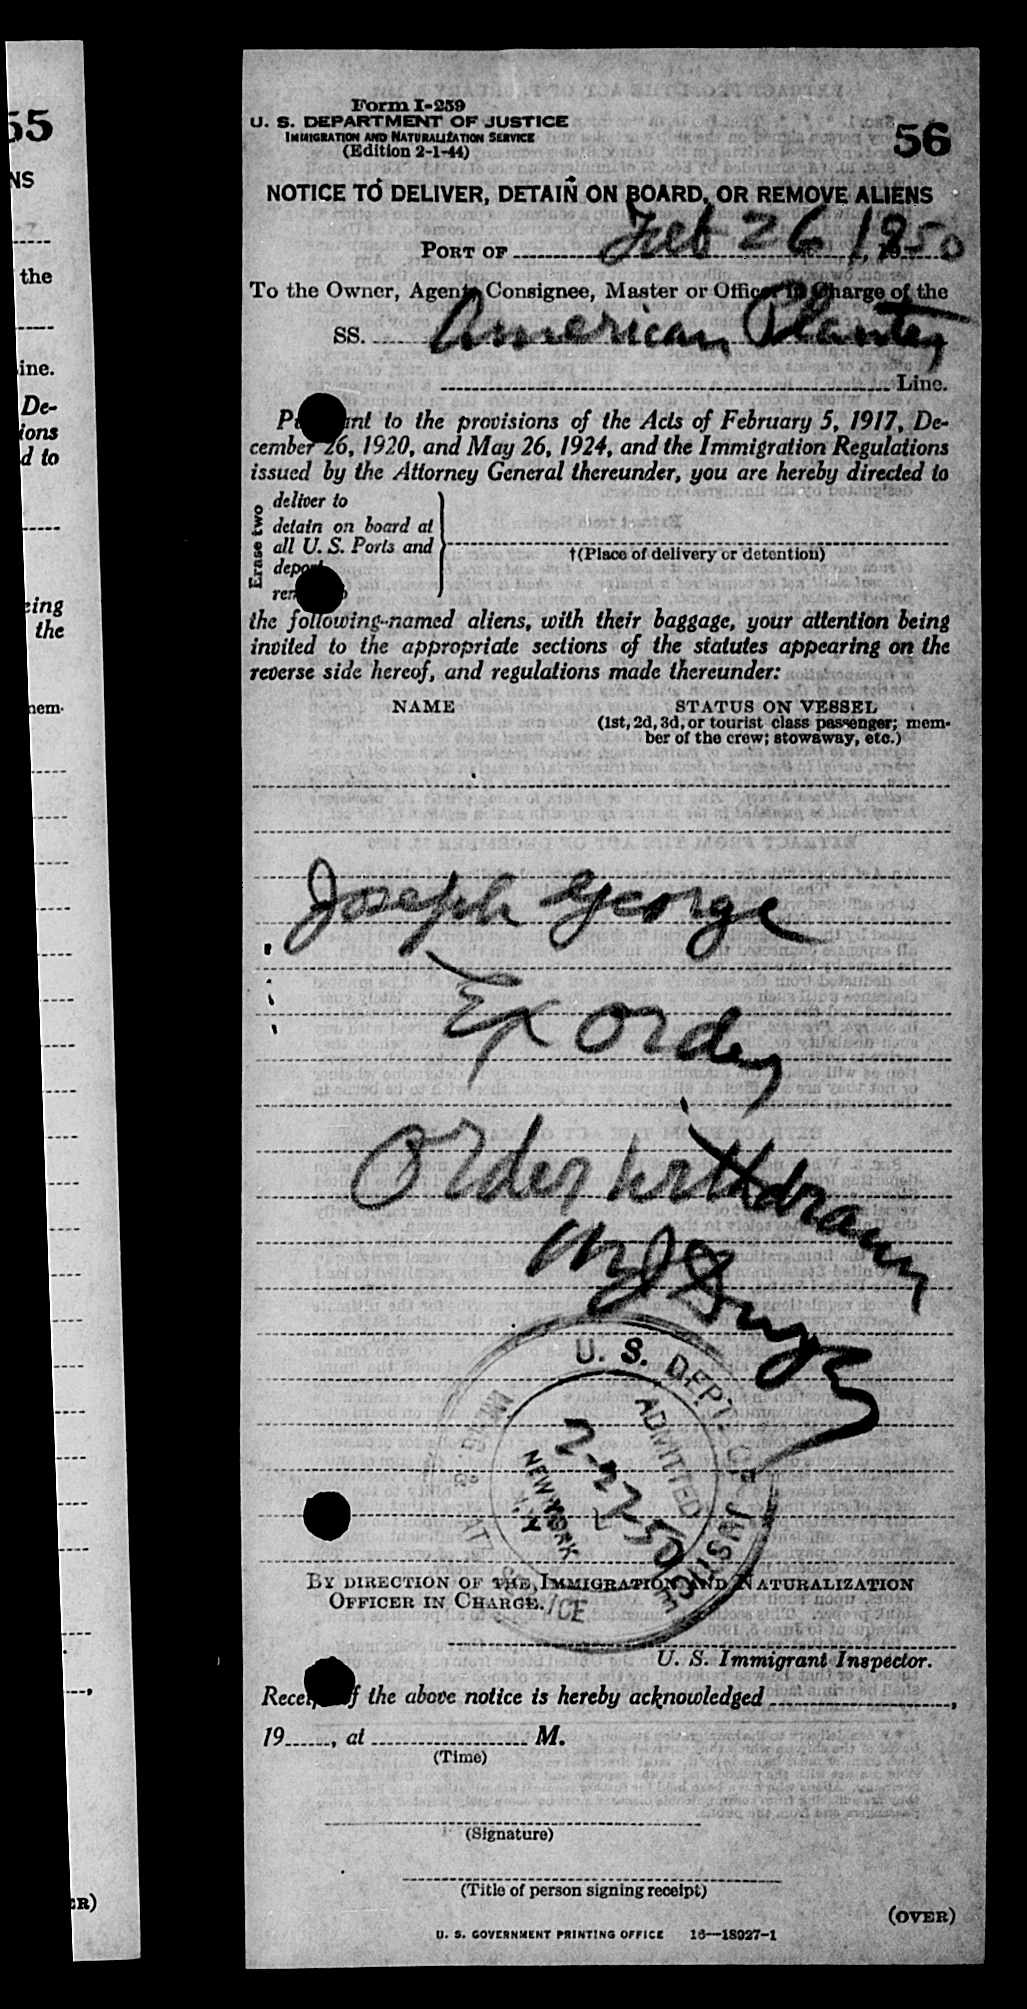 55
NS
the
ine.
De-
ions
d to
eing
the
nem-
ER)
Form I-259
U. S. DEPARTMENT OF JUSTICE
IMMIGRATION AND NATURALIZATION SERVICE
(Edition 2-1-44)
56
NOTICE TO DELIVER, DETAIN ON BOARD, OR REMOVE ALIENS
PORT OF Feb 26 1950
To the Owner, Agent, Consignee, Master or Officer in Charge of the
SS. American Planter
Line.
Pursuant to the provisions of the Acts of February 5, 1917, De-
cember 26, 1920, and May 26, 1924, and the Immigration Regulations
issued by the Attorney General thereunder, you are hereby directed to
Erase two
deliver to
detain on board at
all U. S. Ports and
deport
remove to
†(Place of delivery or detention)
the following-named aliens, with their baggage, your attention being
invited to the appropriate sections of the statutes appearing on the
reverse side hereof, and regulations made thereunder:
NAME STATUS ON VESSEL
(1st, 2d, 3d, or tourist class passenger; mem-
ber of the crew; stowaway, etc.)
Joseph George
Ex order
Order withdrawn
U. S. DEPT. OF JUSTICE
ADMITTED
2-22 50
NEW YORK
N.Y.
SERVICE
BY DIRECTION OF THE IMMIGRATION AND NATURALIZATION
OFFICER IN CHARGE.
U. S. Immigrant Inspector.
Receipt of the above notice is hereby acknowledged ,
19 , at M.
(Time)
(Signature)
(Title of person signing receipt)
(OVER)
U. S. GOVERNMENT PRINTING OFFICE 16—18927-1